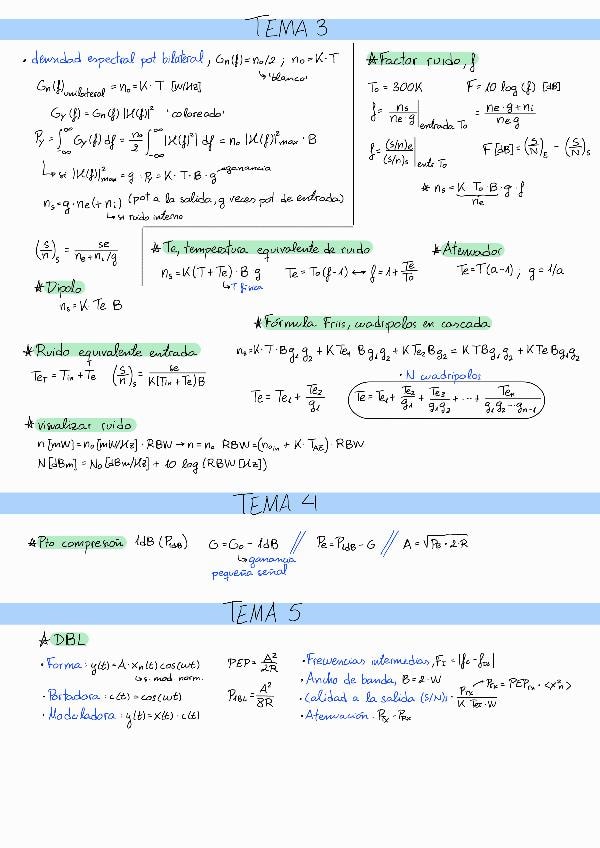 TEMA 3
• densidad espectral pot bilateral, Gn(f)=n₀/2 ; n₀=K·T
↳ 'blanco'
Gn(f)unilateral = n₀ = K·T [W/Hz]
Gy(f) = Gn(f) |H(f)|² 'coloreado'
Py = ∫_{-∞}^{∞} Gy(f) df = n₀/2 ∫_{-∞}^{∞} |H(f)|² df = n₀ |H(f)|²max · B
↳ si |H(f)|²max = g · Py = K·T·B·g → ganancia
ns = g·ne (+ni) (pot a la salida, g veces pot de entrada)
↳ si ruido interno
(s/n)s = se / (n₀+ni/g)
★ Factor ruido, f
T₀ = 300K F = 10 log (f) [dB]
f = ns / (ne·g) | entrada T₀ = (ne·g+ni) / (ne g)
f = (s/n)e / (s/n)s | ent T₀ F[dB] = (S/N)E - (S/N)S
★ ns = K T₀·B·g·f
ne
★ Te, temperatura equivalente de ruido
ns = K(T+Te)·B g Te = T₀(f-1) ↔ f = 1+Te/T₀
↳ T física
★ Atenuador
Te = T(a-1) ; g = 1/a
★ Dipolo
ns = K Te B
★ Fórmula Friis, cuadripolos en cascada
ns = K·T·B g₁ g₂ + K Te₁ B g₁ g₂ + K Te₂ B g₂ = K T B g₁ g₂ + K Te B g₁ g₂
• N cuadripolos
Te = Te₁ + Te₂/g₁ Te = Te₁ + Te₂/g₁ + Te₃/(g₁g₂) + ... + Ten/(g₁g₂...gn-1)
★ Ruido equivalente entrada
TeT = Tin + Te (s/n)s = se / (K(Tin+Te)B)
★ visualizar ruido
n [mW] = n₀ [mW/Hz] · RBW → n = n₀ RBW = (n₀in + K·TAE) · RBW
N [dBm] = N₀ [dBm/Hz] + 10 log (RBW [Hz])
TEMA 4
★ Pto compresión 1dB (P1dB) G = G₀ - 1dB // Pe = P1dB - G // A = √(Ps·2·R)
↳ ganancia
pequeña señal
TEMA 5
★ DBL
• Forma: y(t) = A·xn(t) cos(wt)
↳ s. mod. norm.
• Portadora: c(t) = cos(wt)
• Moduladora: y(t) = x(t)·c(t)
PEP = A²/2R
PBL = A²/8R
• Frecuencias intermedias, FI = |fc - fOL|
• Ancho de banda, B = 2·W
• Calidad a la salida (S/N)s = PRX / (K TeT·W) → PRX = PEPRX·<x²n>
• Atenuación: PTX - PRX